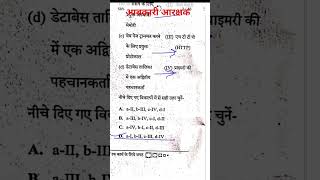 आबकारी आरक्षक
(d) डेटाबेस
प्राइमरी की
में एक अद्वि
पहचानकर्ता
मेमोरी
(c) वेब पेज ट्रान्सफर करने (III) एच टी टी पी
के लिए प्रयुक्त (HTTP)
प्रोटोकाल
(d) डेटाबेस तालिका (IV) प्राइमरी की
में एक अद्वितीय
पहचानकर्ता
नीचे दिए गए विकल्पों में से सही उत्तर चुनें-
A. a-II, b-III, c-IV, d-I
B. a-III, b-IV, c-I, d-II
C. a-IV, b-I, c-II, d-III
D. a-I, b-II, c-III, d-IV
नीचे दिए गए
चुनें-
A. a-II, b-II